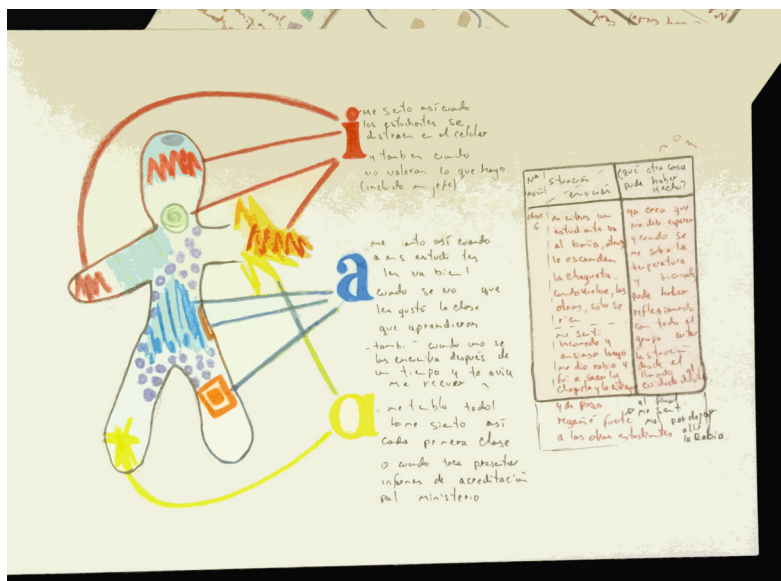 i
me siento así cuando
los estudiantes se
distraen en el celular
y tambien cuando
no valoran lo que hago
(incluido mi jefe)
a
me siento así cuando
a mis estudi tes
les va bien!
cuando se no que
les gustó la clase
que aprendieron
tambi cuando uno se
los encuentra después de
un tiempo y todavía
me recuer n
a
me tiembla todo!
me siento así
cada primera clase
o cuando toca presentar
informes de acreditación
pal ministerio
situación
emoción
¿Qué otra cosa
pude haber
Hecho?
mientras un
estudiante va
al baño, otros
le esconden
la chaqueta.
cuando vuelve, los
otros, solo se
ríen
me sentí
incomodo y
ansioso luego
me dio rabia y
fui a sacar la
chaqueta y la
y de paso
regañé fuerte
a los otros estudiantes
yo creo que
no debí esperar
y cuando se
me suba la
temperatura
y
pude haber
reflexionado
con todo el
grupo
la situación
desde el
llamado al
cuidado
al final
me sentí
mal por dejar
allí
la Rabia.